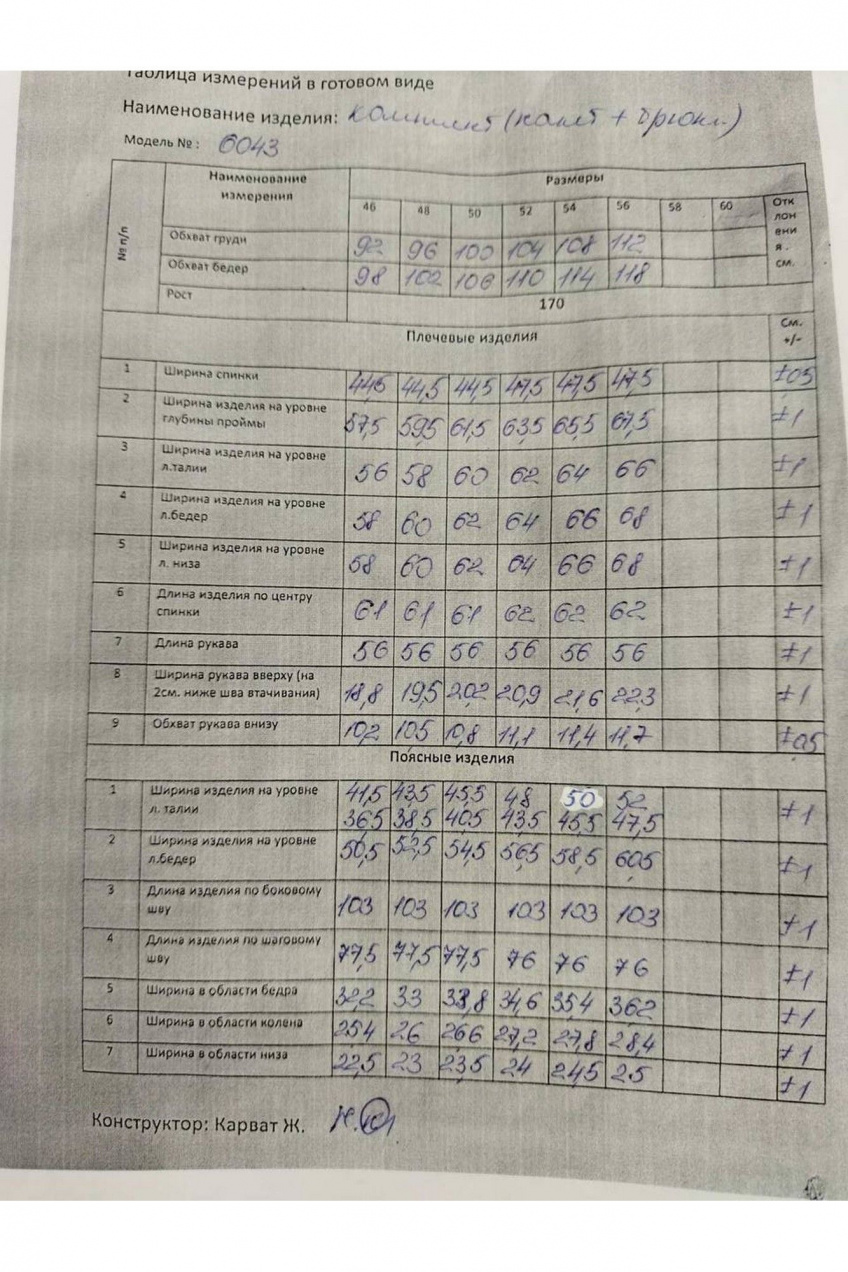 Таблица измерений в готовом виде
Наименование изделия: комплект (жакет + брюки)
Модель № : 6043
№ п/п
Наименование измерения
Размеры
Отк лон ени я . см.
46 48 50 52 54 56 58 60
Обхват груди 92 96 100 104 108 112
Обхват бедер 98 102 106 110 114 118
Рост 170
Плечевые изделия См. +/-
1 Ширина спинки 44,5 44,5 44,5 47,5 47,5 47,5 ±0,5
2 Ширина изделия на уровне
глубины проймы 57,5 59,5 61,5 63,5 65,5 67,5 ±1
3 Ширина изделия на уровне
л.талии 56 58 60 62 64 66 ±1
4 Ширина изделия на уровне
л.бедер 58 60 62 64 66 68 ±1
5 Ширина изделия на уровне
л. низа 58 60 62 64 66 68 ±1
6 Длина изделия по центру
спинки 61 61 61 62 62 62 ±1
7 Длина рукава 56 56 56 56 56 56 ±1
8 Ширина рукава вверху (на
2см. ниже шва втачивания) 18,8 19,5 20,2 20,9 21,6 22,3 ±1
9 Обхват рукава внизу 10,2 10,5 10,8 11,1 11,4 11,7 ±0,5
Поясные изделия
1 Ширина изделия на уровне 41,5 43,5 45,5 48 50 52
л. талии 36,5 38,5 40,5 43,5 45,5 47,5 ±1
2 Ширина изделия на уровне
л.бедер 50,5 52,5 54,5 56,5 58,5 60,5 ±1
3 Длина изделия по боковому
шву 103 103 103 103 103 103 ±1
4 Длина изделия по шаговому
шву 77,5 77,5 77,5 76 76 76 ±1
5 Ширина в области бедра 32,2 33 33,8 34,6 35,4 36,2 ±1
6 Ширина в области колена 25,4 26 26,6 27,2 27,8 28,4 ±1
7 Ширина в области низа 22,5 23 23,5 24 24,5 25 ±1
Конструктор: Карват Ж.